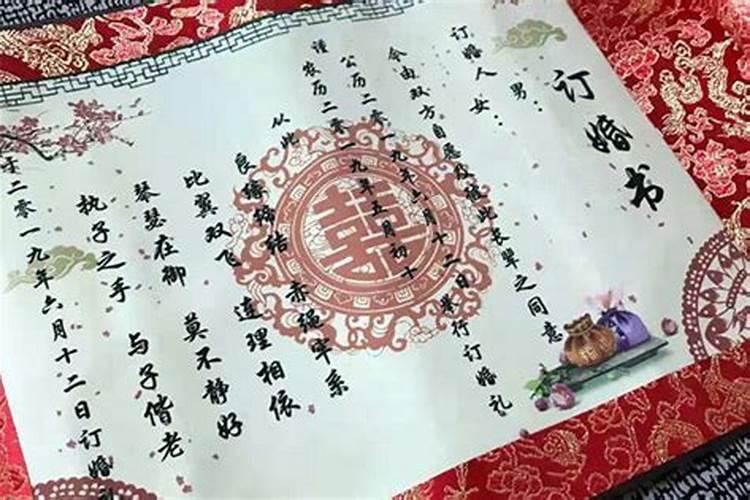 订婚书
订婚人 男：
女：
今由双方自愿及彼此长辈之同意
谨 公历二零一九年六月十二日举行订婚礼
农历二零一九年五月初十
从此 良缘缔结 赤绳牢系
比翼双飞 连理相依
琴瑟在御 莫不静好
执子之手 与子偕老
于二零一九年六月十二日订婚